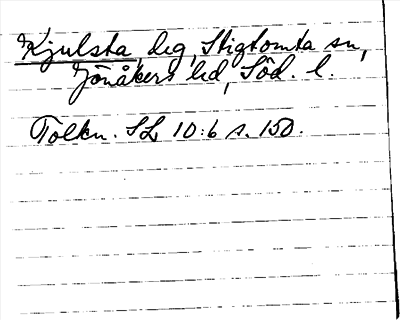 Kjulsta, lrg, Stigtomta sn,
Jönåkers hd, Söd. l.
Tolkn. SL 10:6 s. 150.